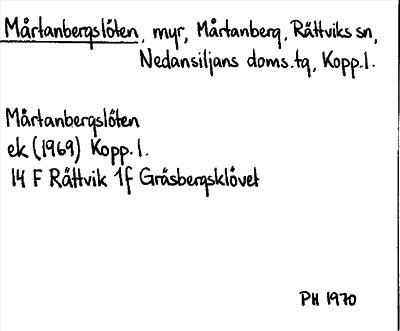 Mårtanbergslöten, myr, Mårtanberg, Rättviks sn,
Nedansiljans doms.tg, Kopp.l.
Mårtanbergslöten
ek (1969) Kopp. l.
14 F Rättvik 1f Gråsbergsklövet
PH 1970